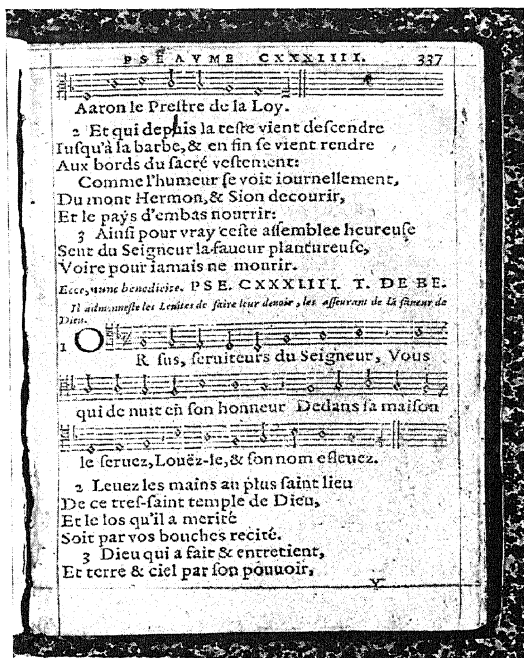 PSEAVME CXXXIIII. 337
Aaron le Preſtre de la Loy.
2 Et qui depuis la teſte vient deſcendre
Iuſqu'à la barbe, & en fin ſe vient rendre
Aux bords du ſacré veſtement:
Comme l'humeur ſe voit iournellement,
Du mont Hermon, & Sion decourir,
Et le pays d'embas nourrir:
3 Ainſi pour vray ceſte aſſemblee heureuſe
Sent du Seigneur la faueur plantureuſe,
Voire pour iamais ne mourir.
Ecce, nunc benedicite. PSE. CXXXIIII. T. DE BE.
Il admoneſte les Leuites de faire leur deuoir, les aſſeurant de la faueur de
Dieu.
1 OR ſus, ſeruiteurs du Seigneur, Vous
qui de nuit en ſon honneur Dedans ſa maiſon
le ſeruez, Louëz-le, & ſon nom eſleuez.
2 Leuez les mains au plus ſaint lieu
De ce treſ-ſaint temple de Dieu,
Et le los qu'il a merité
Soit par vos bouches recité.
3 Dieu qui a fait & entretient,
Et terre & ciel par ſon pouuoir,
Y